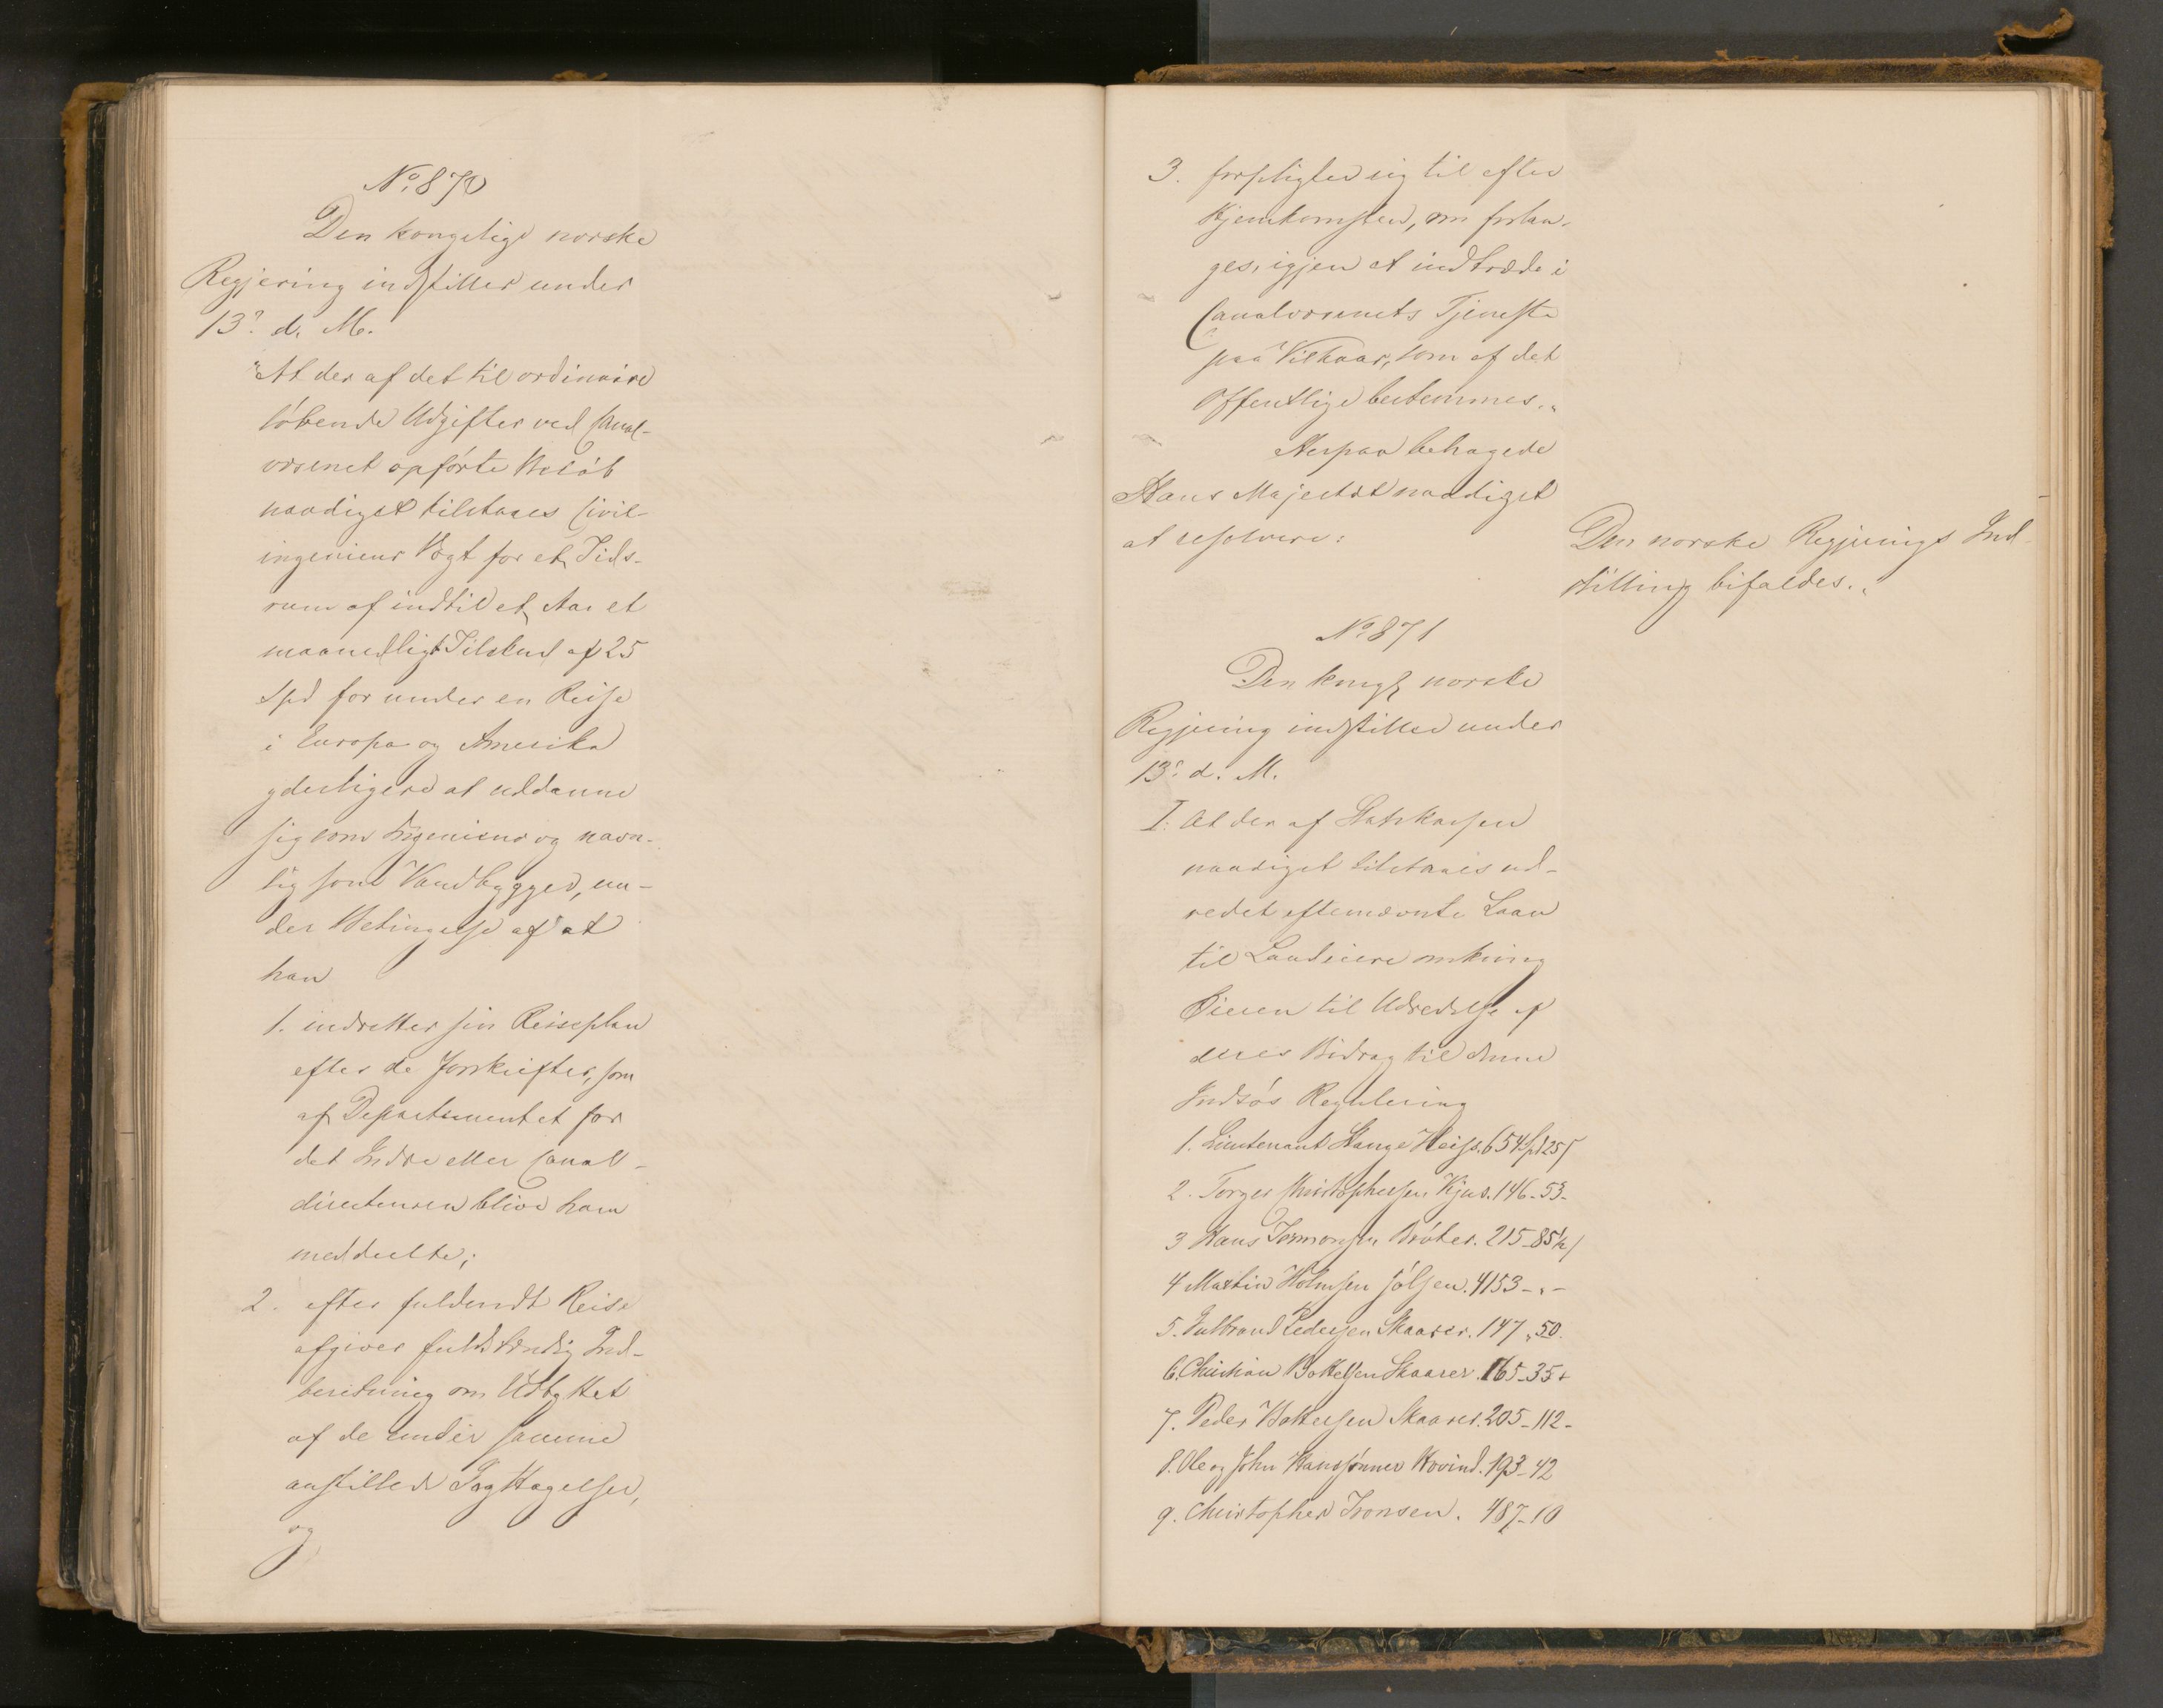 No. 870
Den kongelige norske
Regjering indstiller under
13de d. M.
"At der af det til ordinaire
löbende Udgifter ved Canal-
væsenet opförte Belöb
naadigst tilstaaes Civil-
ingenieur Vogt for et Tids-
rum af indtil et Aar et
maanedligt Tilskud af 25
Spd for under en Reise
i Europa og Amerika
yderligere at uddanne
sig som Ingenieur og navn-
lig som Vandbygger, un-
der Betingelse af at
han
1. indretter sin Reiseplan
efter de Forskrifter, som
af Departementet for
det Indre eller Canal-
directeuren blive ham
meddeelte;
2. efter fuldendt Reise
afgiver fuldstændig Ind-
beretning om Udbyttet
af de under samme
anstillede Iagttagelser,
og
3. forpligter sig til efter
Hjemkomsten, om forlan-
ges, igjen at indtræde i
Canalvæsenets Tjeneste
paa Vilkaar, som af det
Offentlige bestemmes."
Herpaa behagede
Hans Majestæt naadigst
at resolvere:
Den norske Regjerings Ind-
stilling bifaldes."
No. 871
Den kongl. norske
Regjering indstiller under
13de d. M.
I. At der af Statskassen
naadigst tilstaaes ud-
redet efternævnte Laan
til Landeiere omkring
Öieren til Udredelse af
deres Bidrag til denne
Indsös Regulering
1. Lieutenant Stange Heiss. 654 Spd 25 s
2. Torger Christophersen Kjus. 146-53-
3 Hans Tormonsen Bröter. 215-85½ s
4 Martin Holmsen Sölsen. 4153-"-
5. Gulbrand Pedersen Skaarer. 147 "50.
6. Christian Bottelsen Skaarer. 165-35
7. Peder Bottersen Skaarer. 205-112-
8. Ole og John Hanssönner Hovind. 193-42
9. Christopher Ironsen. 487-10